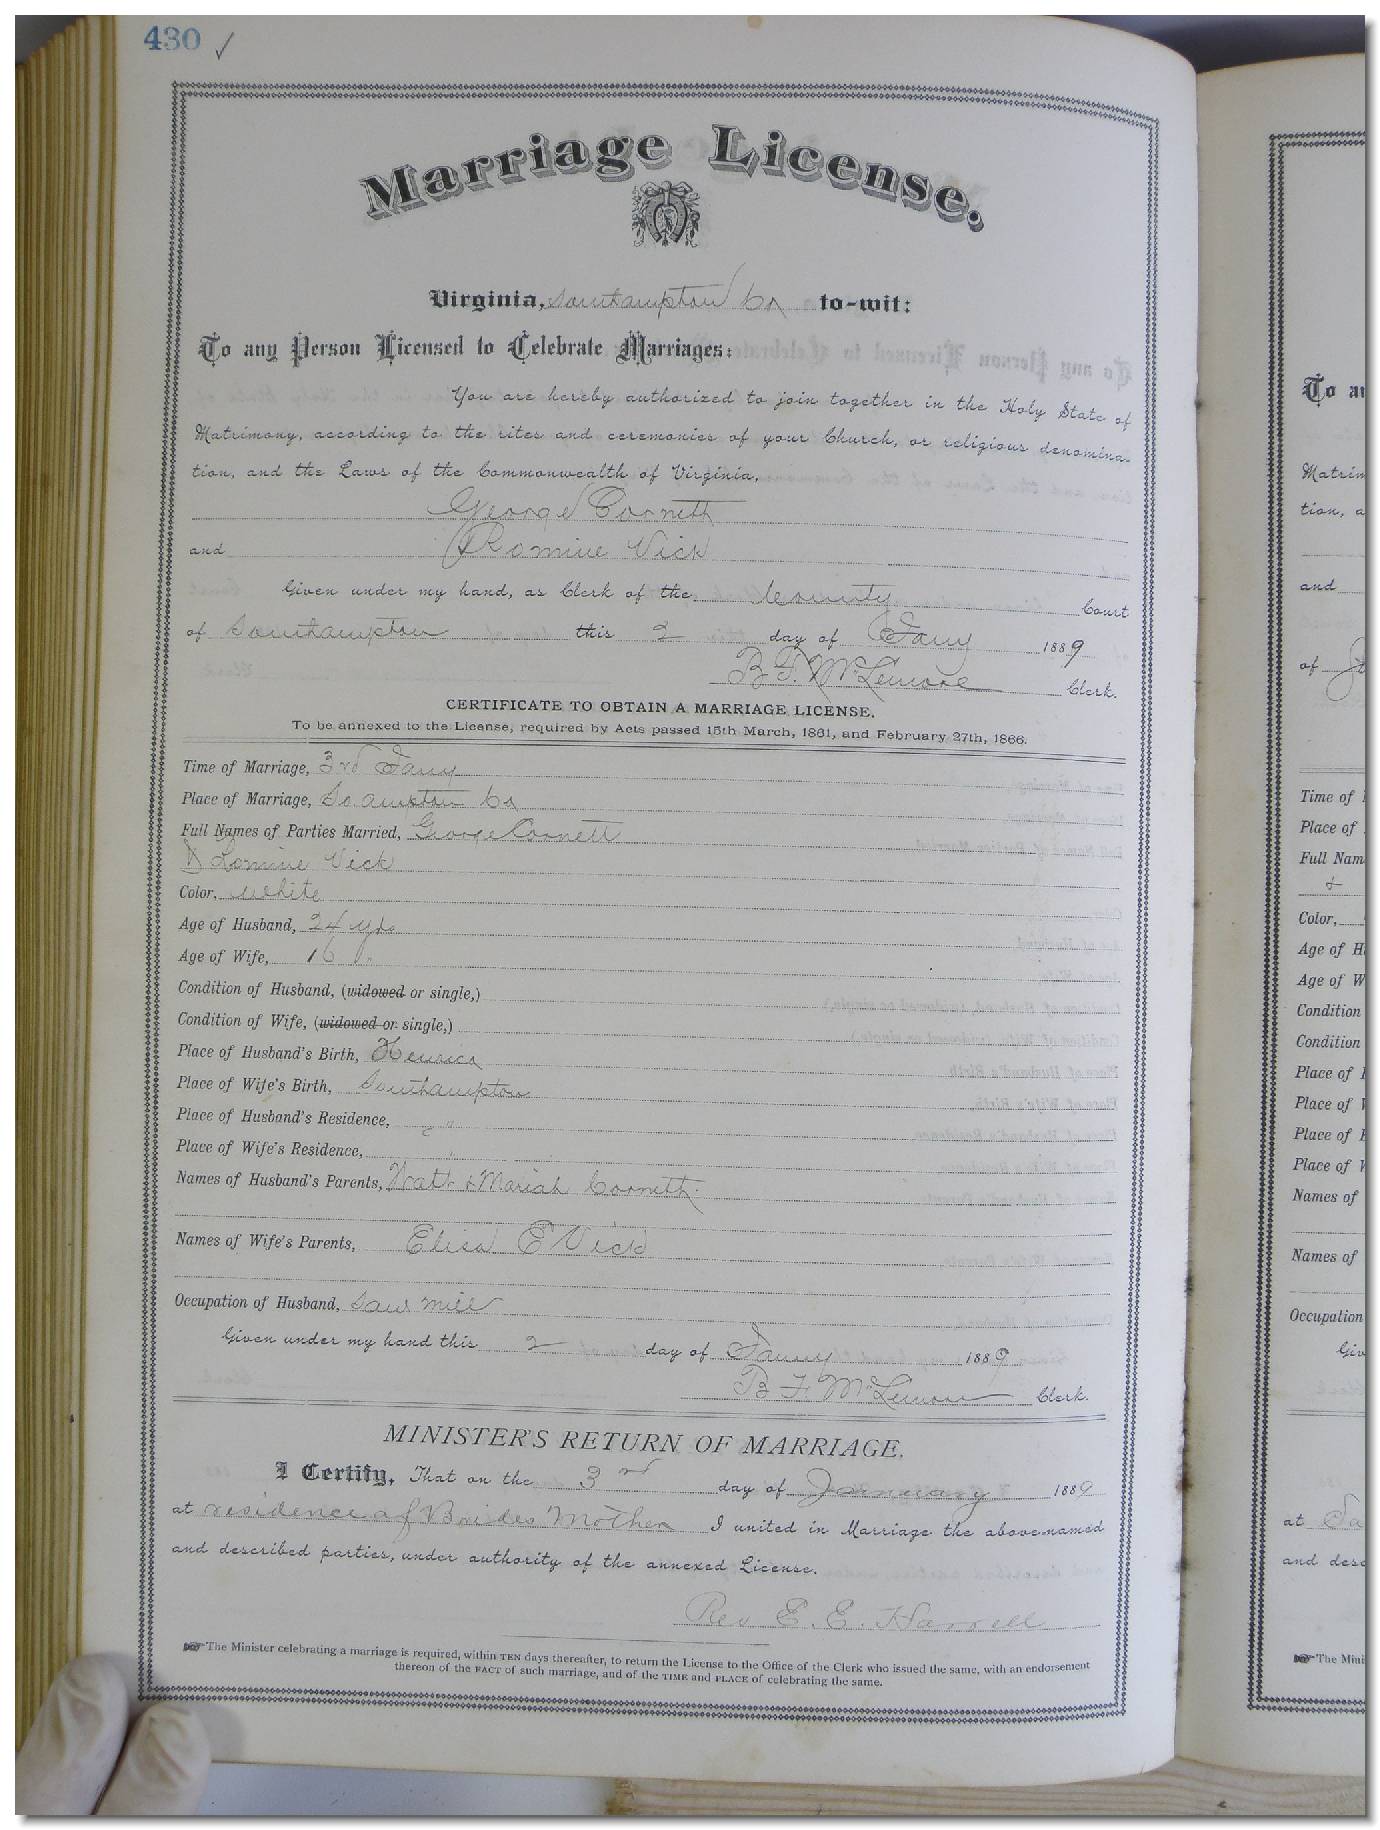 430 ✓
Marriage License.
Virginia, Southampton Co to-wit:
To any Person Licensed to Celebrate Marriages:
You are hereby authorized to join together in the Holy State of
Matrimony, according to the rites and ceremonies of your Church, or religious denomina-
tion, and the Laws of the Commonwealth of Virginia,
George Cornett
and Romine Vick
Given under my hand, as Clerk of the County Court
of Southampton this 2 day of Jany 1889
B. F. McLemore Clerk.
CERTIFICATE TO OBTAIN A MARRIAGE LICENSE.
To be annexed to the License, required by Acts passed 15th March, 1861, and February 27th, 1866.
Time of Marriage, 3rd Jany
Place of Marriage, So. ampton Co
Full Names of Parties Married, George Cornett
& Romine Vick
Color, White
Age of Husband, 24 yrs
Age of Wife, 16 "
Condition of Husband, (widowed or single,)
Condition of Wife, (widowed or single,)
Place of Husband's Birth, Henrico
Place of Wife's Birth, Southampton
Place of Husband's Residence, "
Place of Wife's Residence, "
Names of Husband's Parents, Watt & Mariah Cornett
Names of Wife's Parents, Elisa E Vick
Occupation of Husband, Saw mill
Given under my hand this 2 day of Jany 1889
B F. McLemore Clerk.
MINISTER'S RETURN OF MARRIAGE.
I Certify, That on the 3rd day of January 1889
at residence of Brides Mother I united in Marriage the above-named
and described parties, under authority of the annexed License.
Rev E. E. Harrell
☞The Minister celebrating a marriage is required, within TEN days thereafter, to return the License to the Office of the Clerk who issued the same, with an endorsement
thereon of the FACT of such marriage, and of the TIME and PLACE of celebrating the same.
To a
Matrim
tion, a
and
of
Time of
Place of
Full Nam
&
Color,
Age of H
Age of W
Condition
Condition
Place of
Place of W
Place of
Place of W
Names of
Names of
Occupation
Giv
at
and desc
☞The Mini